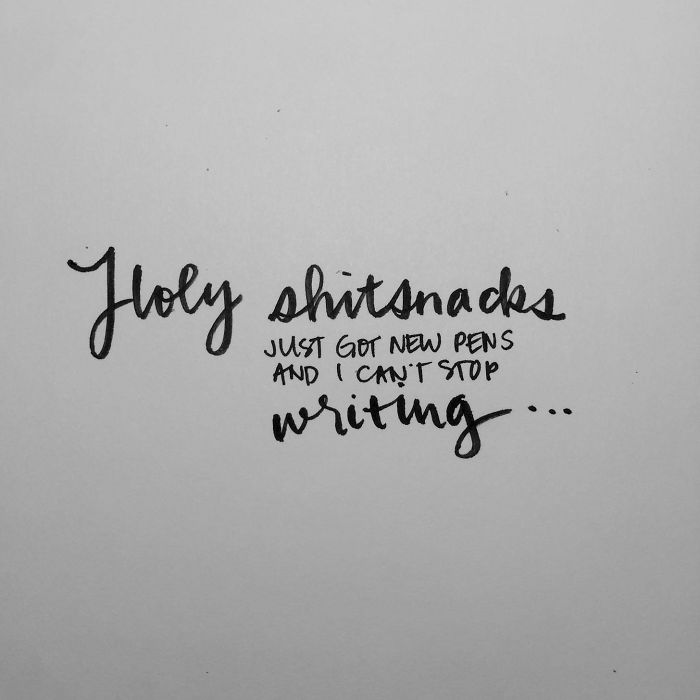 Holy shitsnacks
JUST GOT NEW PENS
AND I CAN'T STOP
writing...